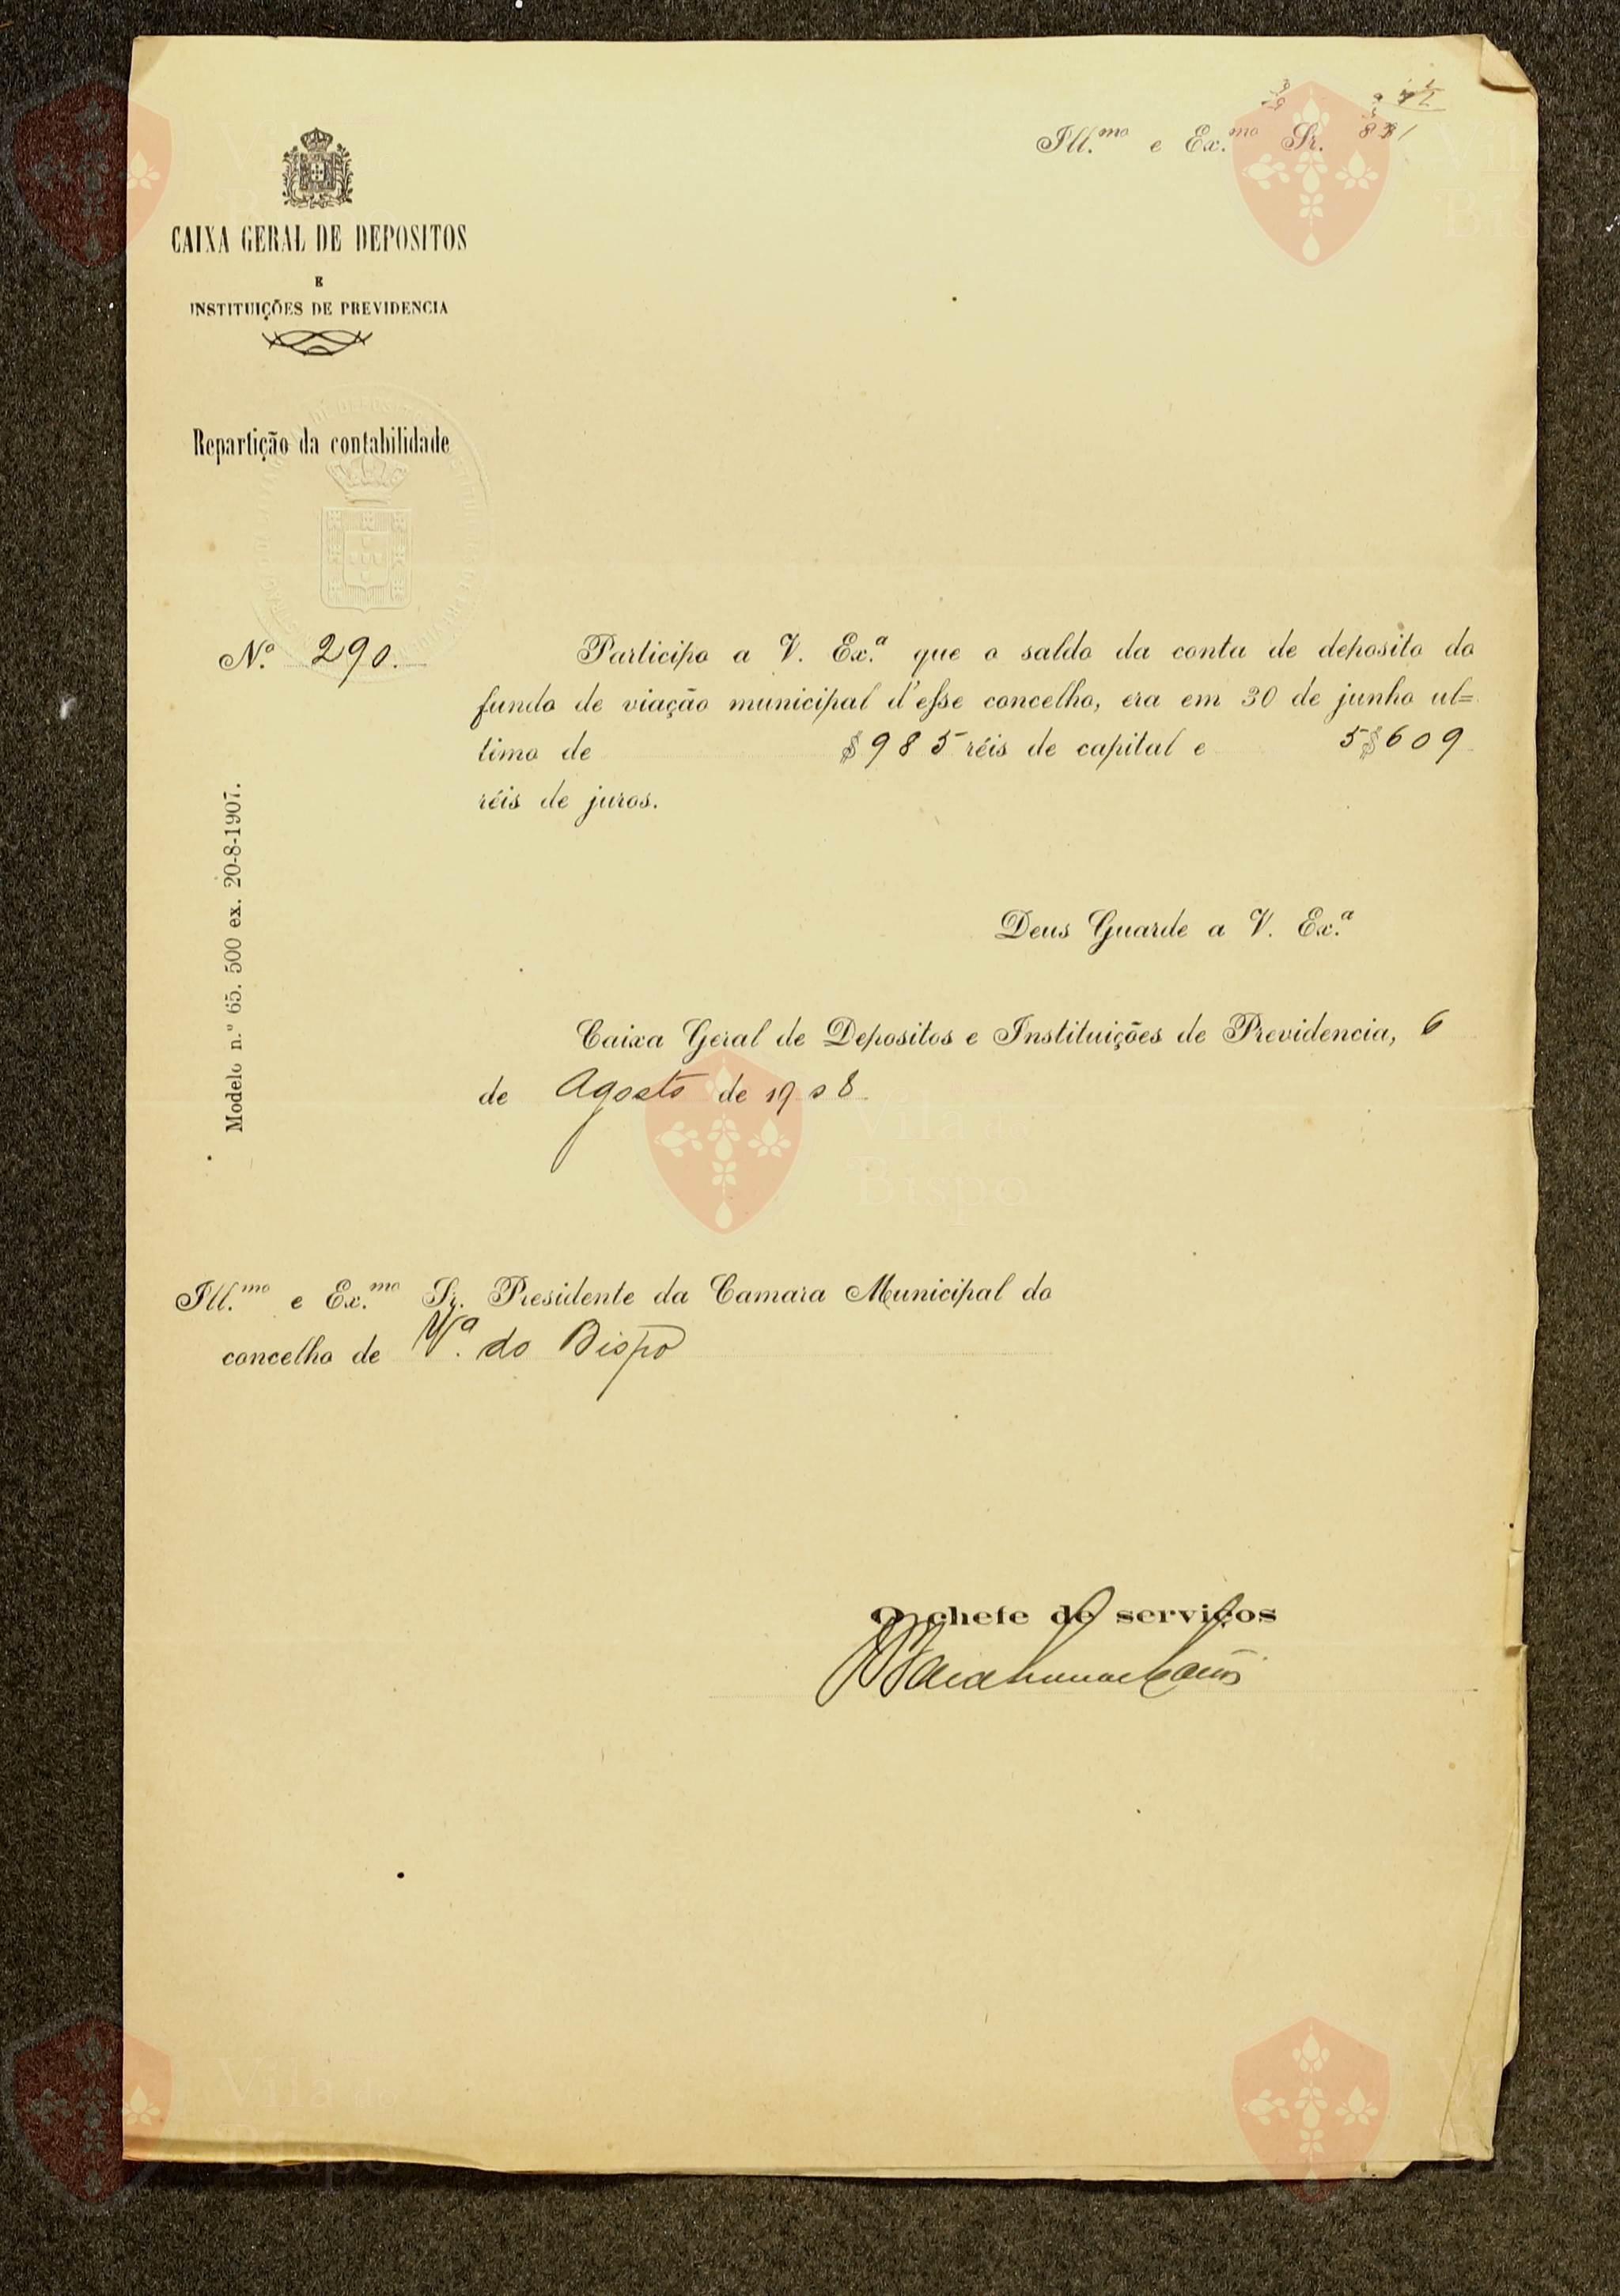 Ill.mo e Ex.mo Sr.
CAIXA GERAL DE DEPOSITOS
E
INSTITUIÇÕES DE PREVIDENCIA
Repartição da contabilidade
N.º 290.
Participo a V. Ex.ª que o saldo da conta de deposito do
fundo de viação municipal d'esse concelho, era em 30 de junho ul=
timo de $985 réis de capital e 5$609
réis de juros.
Modelo n.º 65. 500 ex. 20-8-1907.
Deus Guarde a V. Ex.ª
Caixa Geral de Depositos e Instituições de Previdencia, 6
de Agosto de 1908
Vila do
Bispo
Ill.mo e Ex.mo Sr. Presidente da Camara Municipal do
concelho de Vª. do Bispo
O chefe de serviços
Vila do
Bispo